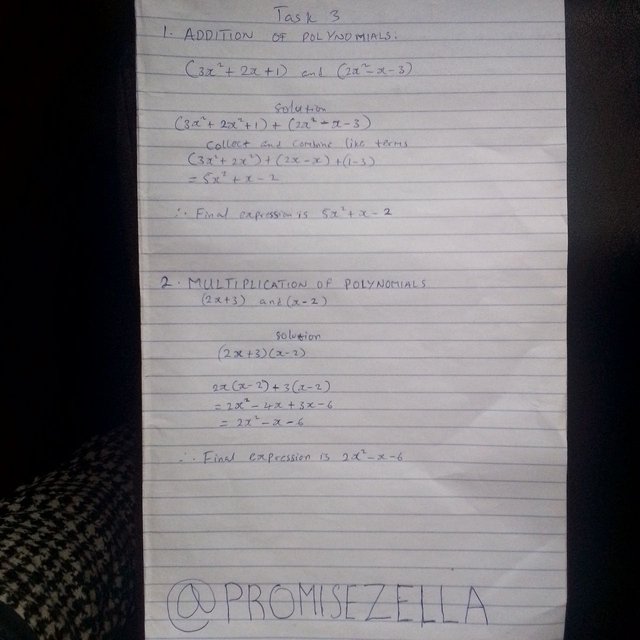 Task 3
1. ADDITION OF POLYNOMIALS:
(3x² + 2x + 1) and (2x² - x - 3)
Solution
(3x² + 2x² + 1) + (2x² - x - 3)
Collect and combine like terms
(3x² + 2x²) + (2x - x) + (1 - 3)
= 5x² + x - 2
∴ Final expression is 5x² + x - 2
2. MULTIPLICATION OF POLYNOMIALS
(2x + 3) and (x - 2)
Solution
(2x + 3)(x - 2)
2x(x - 2) + 3(x - 2)
= 2x² - 4x + 3x - 6
= 2x² - x - 6
∴ Final expression is 2x² - x - 6
@PROMISEZELLA